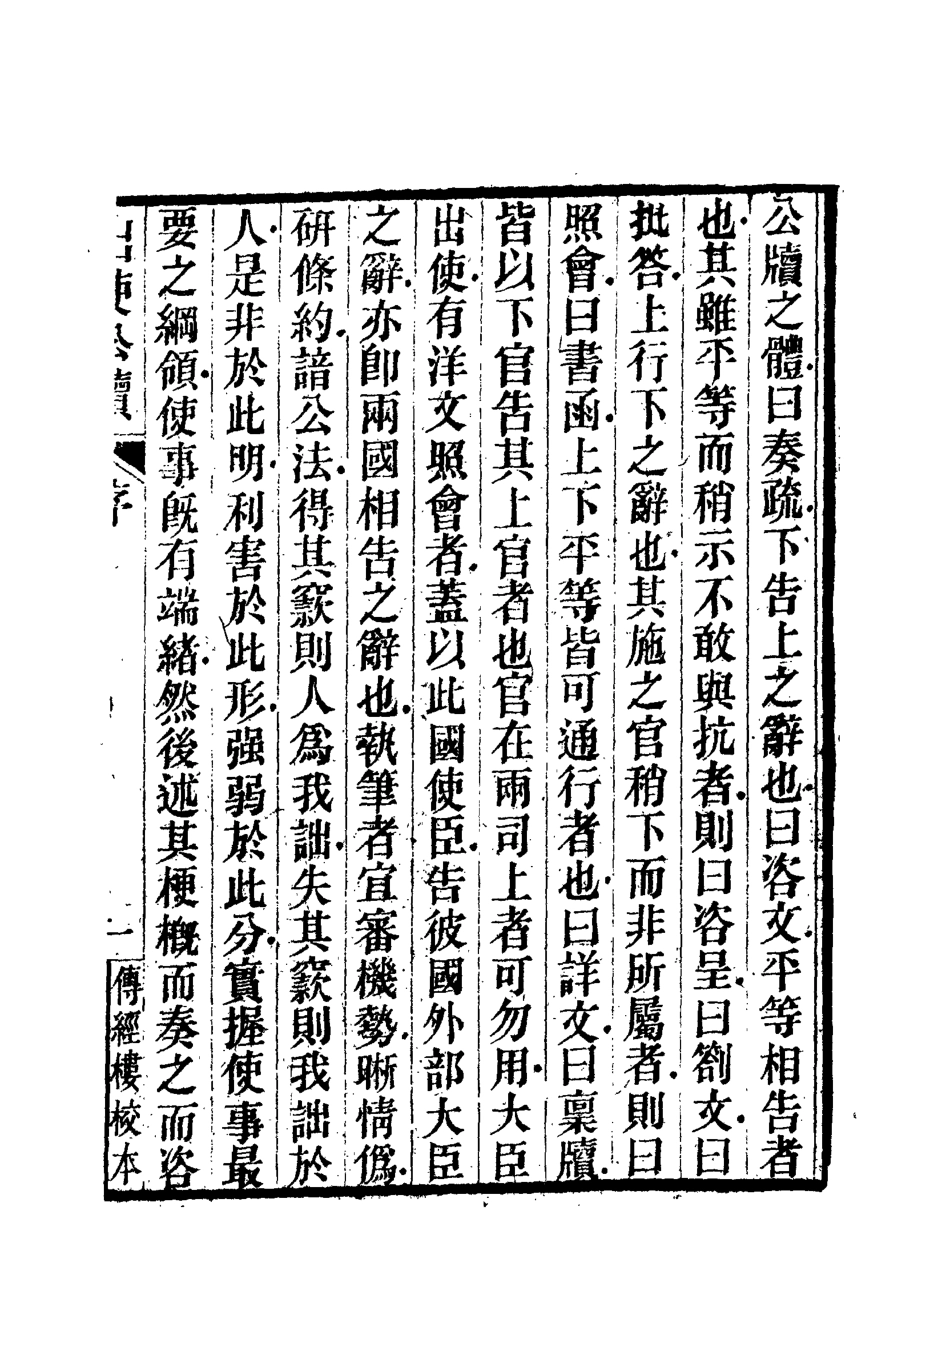 公牘之體曰奏疏下告上之辭也曰咨文平等相告者
也其雖平等而稍示不敢與抗者則曰咨呈曰劄文曰
批答上行下之辭也其施之官稍下而非所屬者則曰
照會曰書函上下平等皆可通行者也曰詳文曰稟牘
皆以下官告其上官者也官在兩司上者可勿用大臣
出使有洋文照會者蓋以此國使臣告彼國外部大臣
之辭亦卽兩國相告之辭也執筆者宜審機勢晰情僞
硏條約諳公法得其窾則人爲我詘失其窾則我詘於
人是非於此明利害於此形强弱於此分實握使事最
要之綱領使事旣有端緒然後述其梗槪而奏之而咨
出使公牘 序 一 傳經樓校本